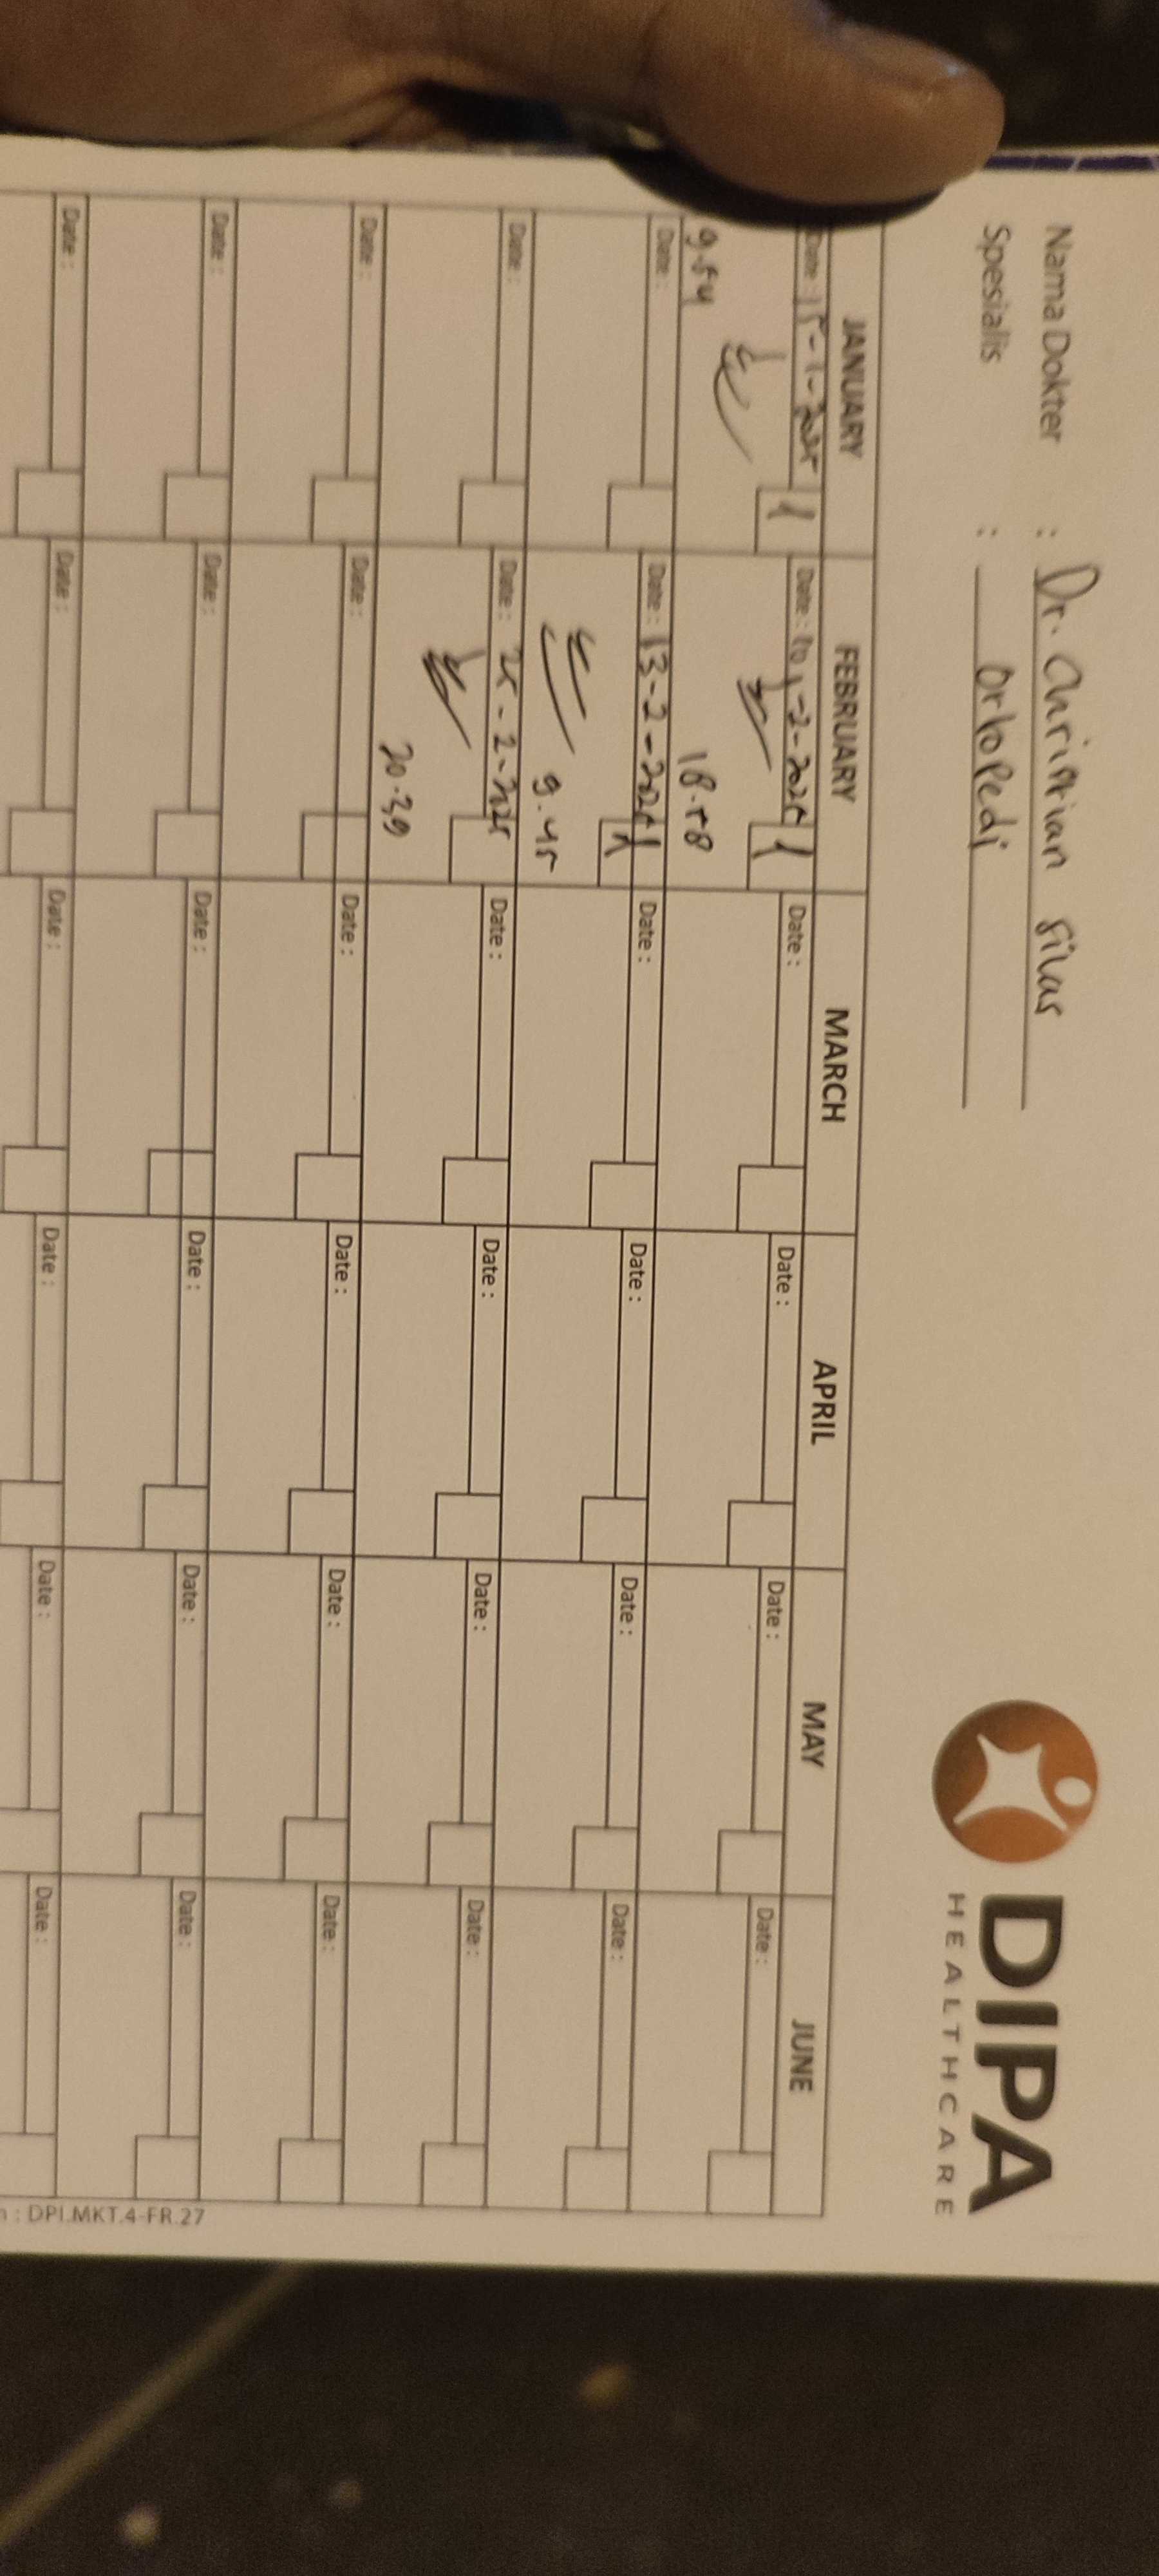 Nama Dokter : Dr. Christian Silas
Spesialis : Ortopedi
DIPA
HEALTHCARE
JANUARY FEBRUARY MARCH APRIL MAY JUNE
Date : 15-1-2025 1 Date : 10-2-2025 1 Date : Date : Date : Date :
9.54 18.58
Date : Date : 13-2-2025 1 Date : Date : Date : Date :
9.45
Date : Date : 25-2-2025 Date : Date : Date : Date :
20.39
Date : Date : Date : Date : Date : Date :
Date : Date : Date : Date : Date : Date :
Date : Date : Date : Date : Date : Date :
: DPI.MKT.4-FR.27